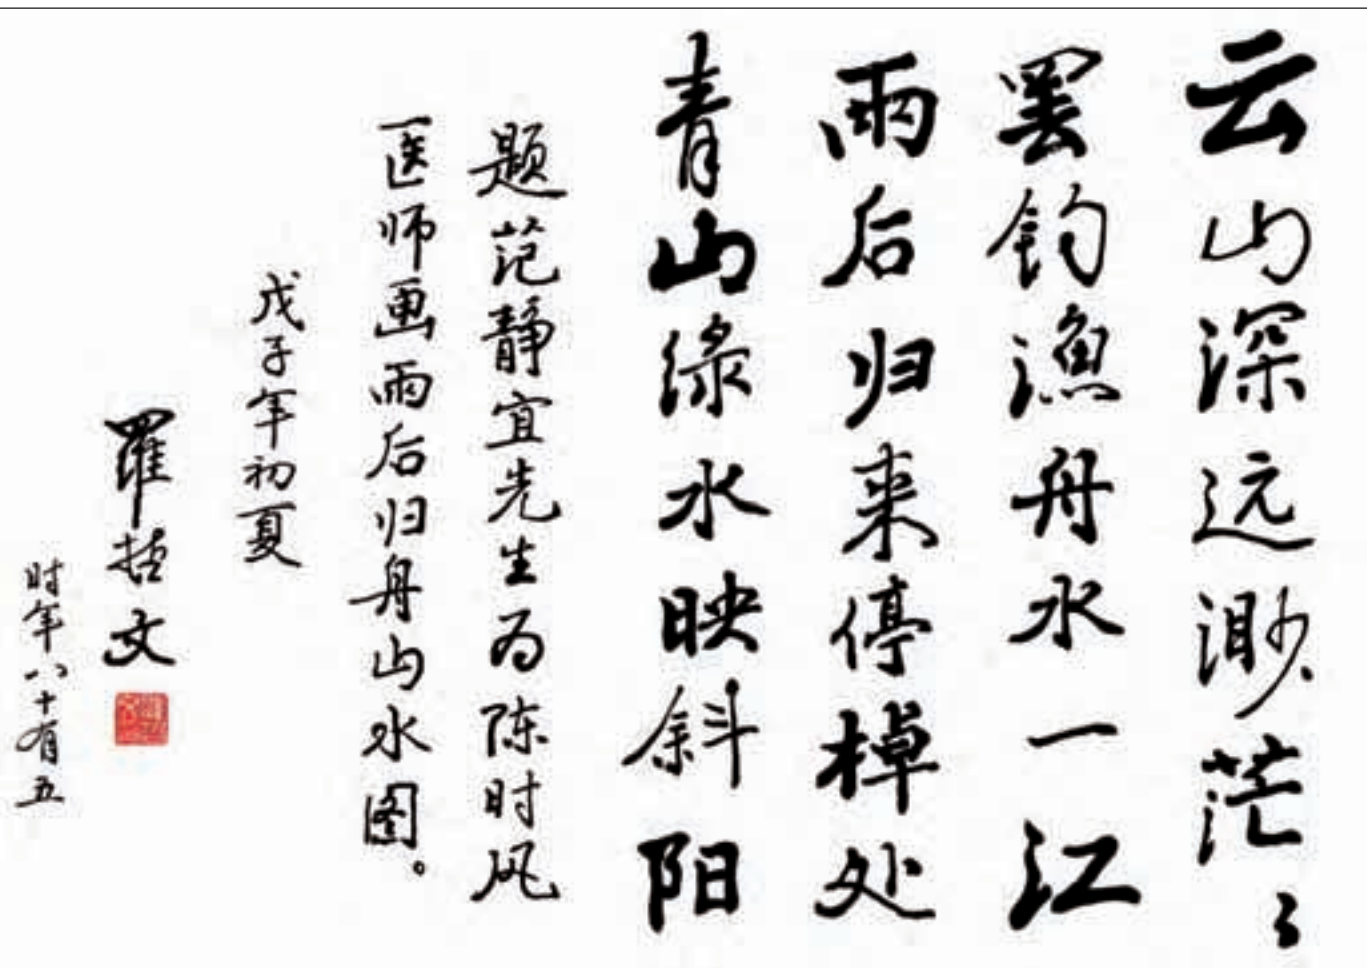 云山深远渺茫々
罢钓渔舟水一江
雨后归来停棹处
青山绿水映斜阳
题范静宜先生为陈时风
医师画雨后归舟山水图。
戊子年初夏
罗哲文
时年八十有五